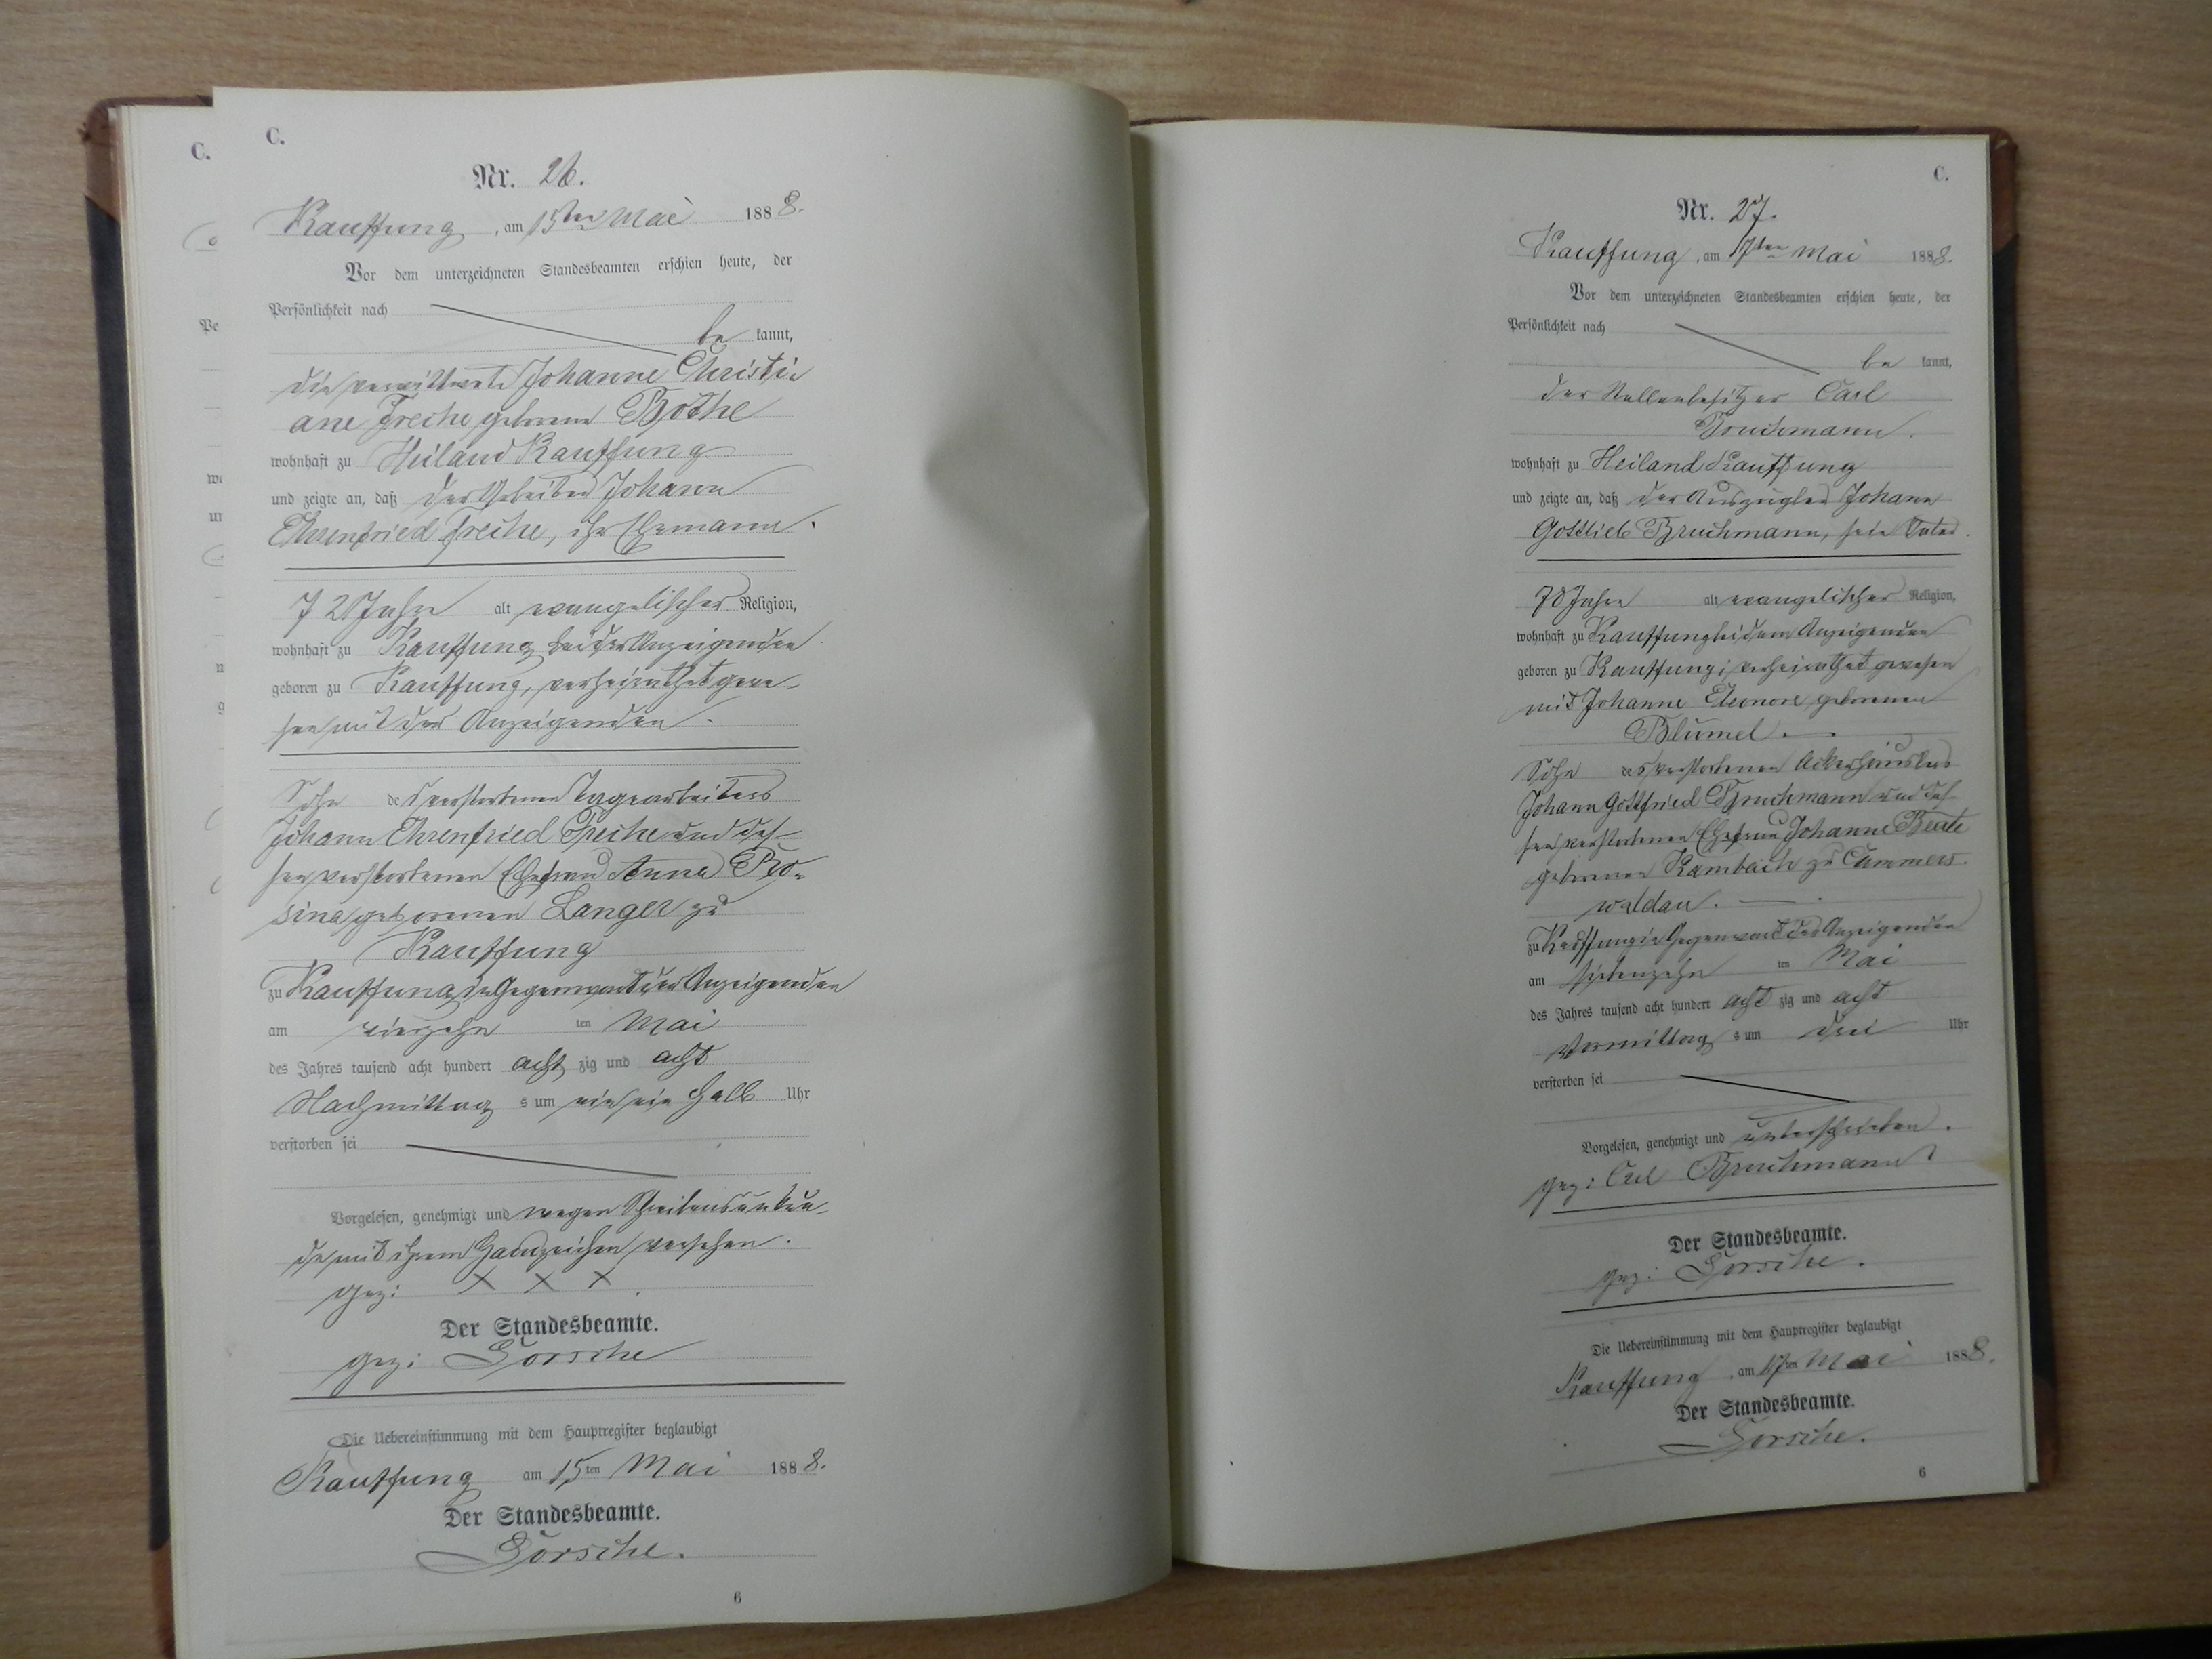 C.
C.
Nr. 26.
Kauffung, am 15ten Mai 1888.
Vor dem unterzeichneten Standesbeamten erschien heute, der
Persönlichkeit nach
Pe
be kannt,
die verwittwete Johanne Christi
ane Freche geborene Bothe
wohnhaft zu Heiland Kauffung
und zeigte an, daß der Arbeiter Johann
Ehrenfried Freche, ihr Ehemann.
72 Jahre alt evangelischer Religion,
wohnhaft zu Kauffung bei der Anzeigenden
geboren zu Kauffung, verheirathet gewe-
sen mit der Anzeigenden.
Sohn des verstorbenen Tagearbeiters
Johann Ehrenfried Freche und des-
sen verstorbenen Ehefrau Anna Ro-
sina geborenen Langer zu
Kauffung
zu Kauffung in Gegenwart der Anzeigenden
am vierzehn ten Mai
des Jahres tausend acht hundert acht zig und acht
Nachmittag s um ein ein halb Uhr
verstorben sei
Vorgelesen, genehmigt und wegen Schreibensunkun-
de mit ihrem Handzeichen versehen.
gez: X X X
Der Standesbeamte.
gez: Görsche
Die Uebereinstimmung mit dem Hauptregister beglaubigt
Kauffung am 15ten Mai 1888.
Der Standesbeamte.
Görsche.
6
C.
Nr. 27.
Kauffung, am 17ten Mai 1888.
Vor dem unterzeichneten Standesbeamten erschien heute, der
Persönlichkeit nach
be kannt,
der Stellenbesitzer Carl
Bruchmann.
wohnhaft zu Heiland Kauffung
und zeigte an, daß der Auszügler Johann
Gottlieb Bruchmann, sein Vater.
78 Jahre alt evangelischer Religion,
wohnhaft zu Kauffung bei dem Anzeigenden
geboren zu Kauffung; verheirathet gewesen
mit Johanne Eleonore geborenen
Blümel.
Sohn des verstorbenen Ackerhäuslers
Johann Gottfried Bruchmann und des-
sen verstorbenen Ehefrau Johanne Beate
geborenen Rambach zu Cammers-
waldau.
zu Kauffung in Gegenwart des Anzeigenden
am siebenzehn ten Mai
des Jahres tausend acht hundert acht zig und acht
Vormittag s um drei Uhr
verstorben sei
Vorgelesen, genehmigt und unterschrieben.
gez: Carl Bruchmann
Der Standesbeamte.
gez: Görsche.
Die Uebereinstimmung mit dem Hauptregister beglaubigt
Kauffung, am 17ten Mai 1888.
Der Standesbeamte.
Görsche.
6